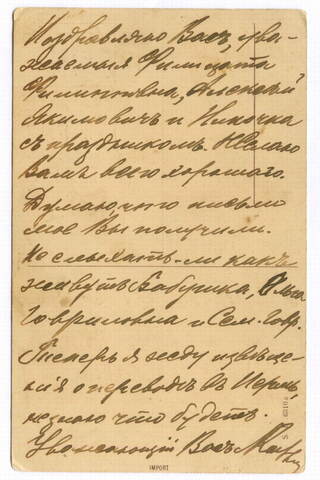 Поздравляю Васъ, ува-
жаемыя Фелицата
Филиповна, Алексѣй
Якимовичъ и Ниночка
съ праздникомъ. Желаю
Вамъ всего хорошаго.
Думаю что письмо
мое Вы получили.
Не слыхать-ли какъ
живутъ Бабушка, Ольга
Гавриловна и Сем. Гавр.
Теперь я жду извѣще-
нія о переводѣ въ
незнаю что будетъ.
Уважающій Васъ
IMPORT